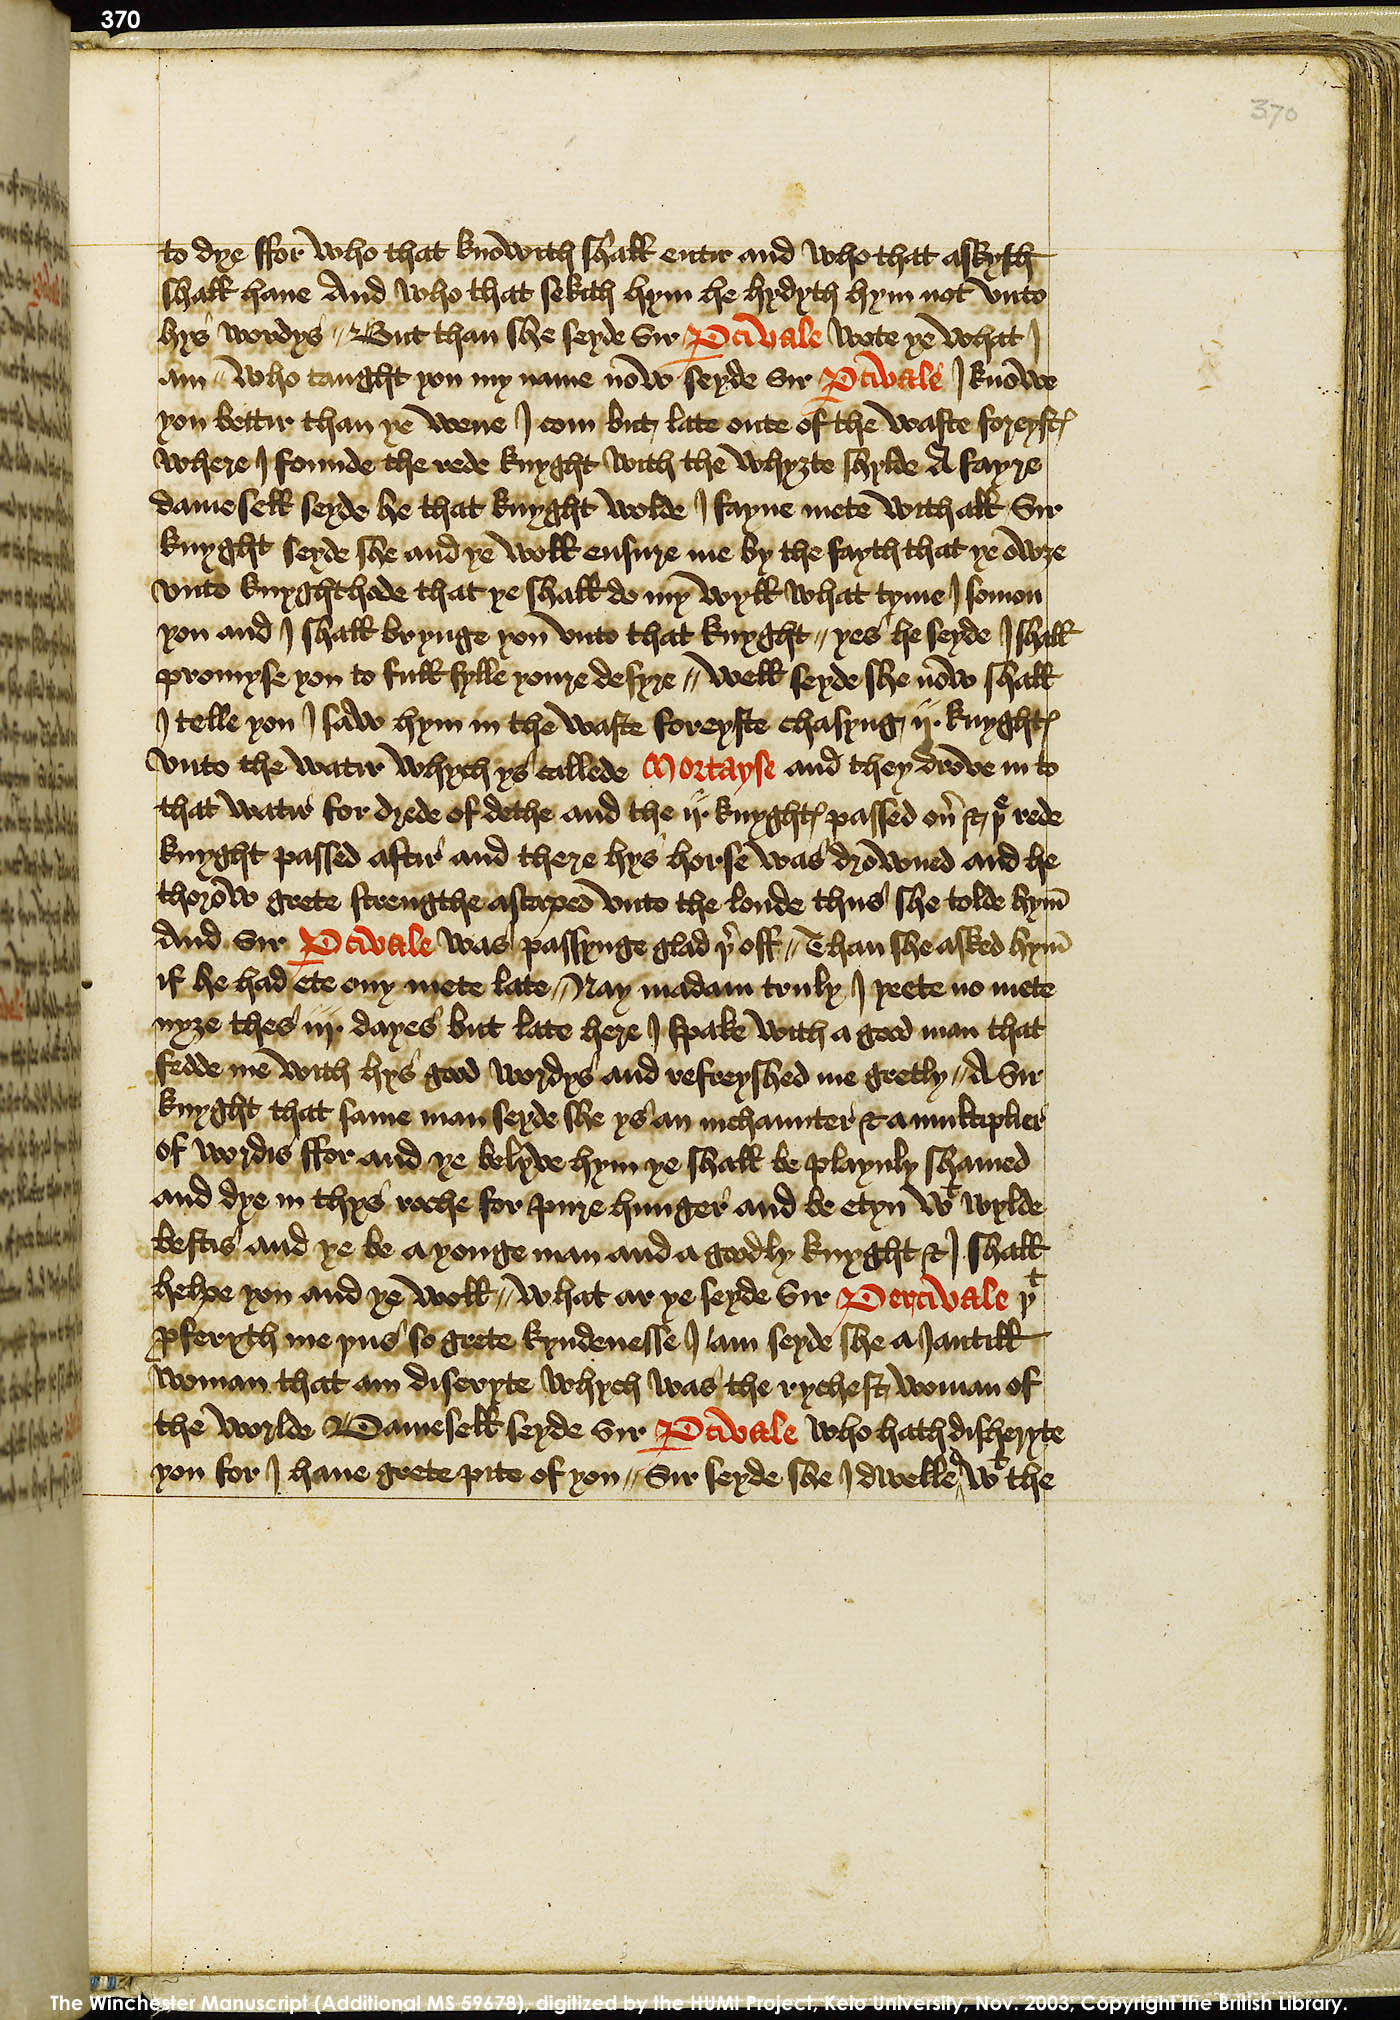 370
370
to dye ffor who that knowith shall entir and who that askyth
shall haue And who that sekith hym he hydyth hym not vnto
hys wordys // But than she seyde Sir Pcivale wote ye what I
am // Who taught you my name now seyde Sir Pcivale I knowe
you bettir than ye wene I com but late oute of the waste foreyst
where I founde the rede knyght with the whyzte shylde A fayre
damesell seyde he that knyght wolde I fayne mete with all Sir
knyght seyde she and ye woll ensure me by the fayth that ye owze
vnto knyghthode that ye shall do my wyll what tyme I somon
you and I shall brynge you vnto that knyght // yes he seyde I shall
promyse you to full fylle youre desyre // Well seyde she now shall
I telle you I saw hym in the waste foreyste chasyng ij. knyghtꝭ
vnto the watir whych ys callede Mortayse and they drove in to
that watir for drede of dethe and the ij. knyghtꝭ passed ouͬ & þͤ rede
knyght passed aftir and there hys horse was drowned and he
thorow grete strengthe ascaped vnto the londe thus she tolde hym̄
And Sir Pcivale was passynge glad þͬ off // Than she asked hym̄
if he had ete ony mete late // Nay madam truly I yeete no mete
nyze thes iij. dayes but late here I spake with a good man that
fedde me with hys good wordys and refreyshed me gretly // A Sir
knyght that same man seyde she ys an inchaunter & a multiplier
of wordis ffor and ye belyve hym ye shall be playnly shamed
and dye in thys roche for pure hunger and be etyn wͭ wylde
bestis and ye be a yonge man and a goodly knyght & I shall
helpe you and ye woll // What ar ye seyde Sir Percivale þͭ
ꝓferyth me þus so grete kyndenesse I am seyde she a Jantill
woman that am diseryte whych was the rychest woman of
the worlde Damesell seyde Sir Pcivale who hath disheryte
you for I haue grete pite of you // Sir seyde she I dwelled wͭ the
The Winchester Manuscript (Additional MS 59678), digitized by the HUMI Project, Keio University, Nov. 2003; Copyright the British Library.